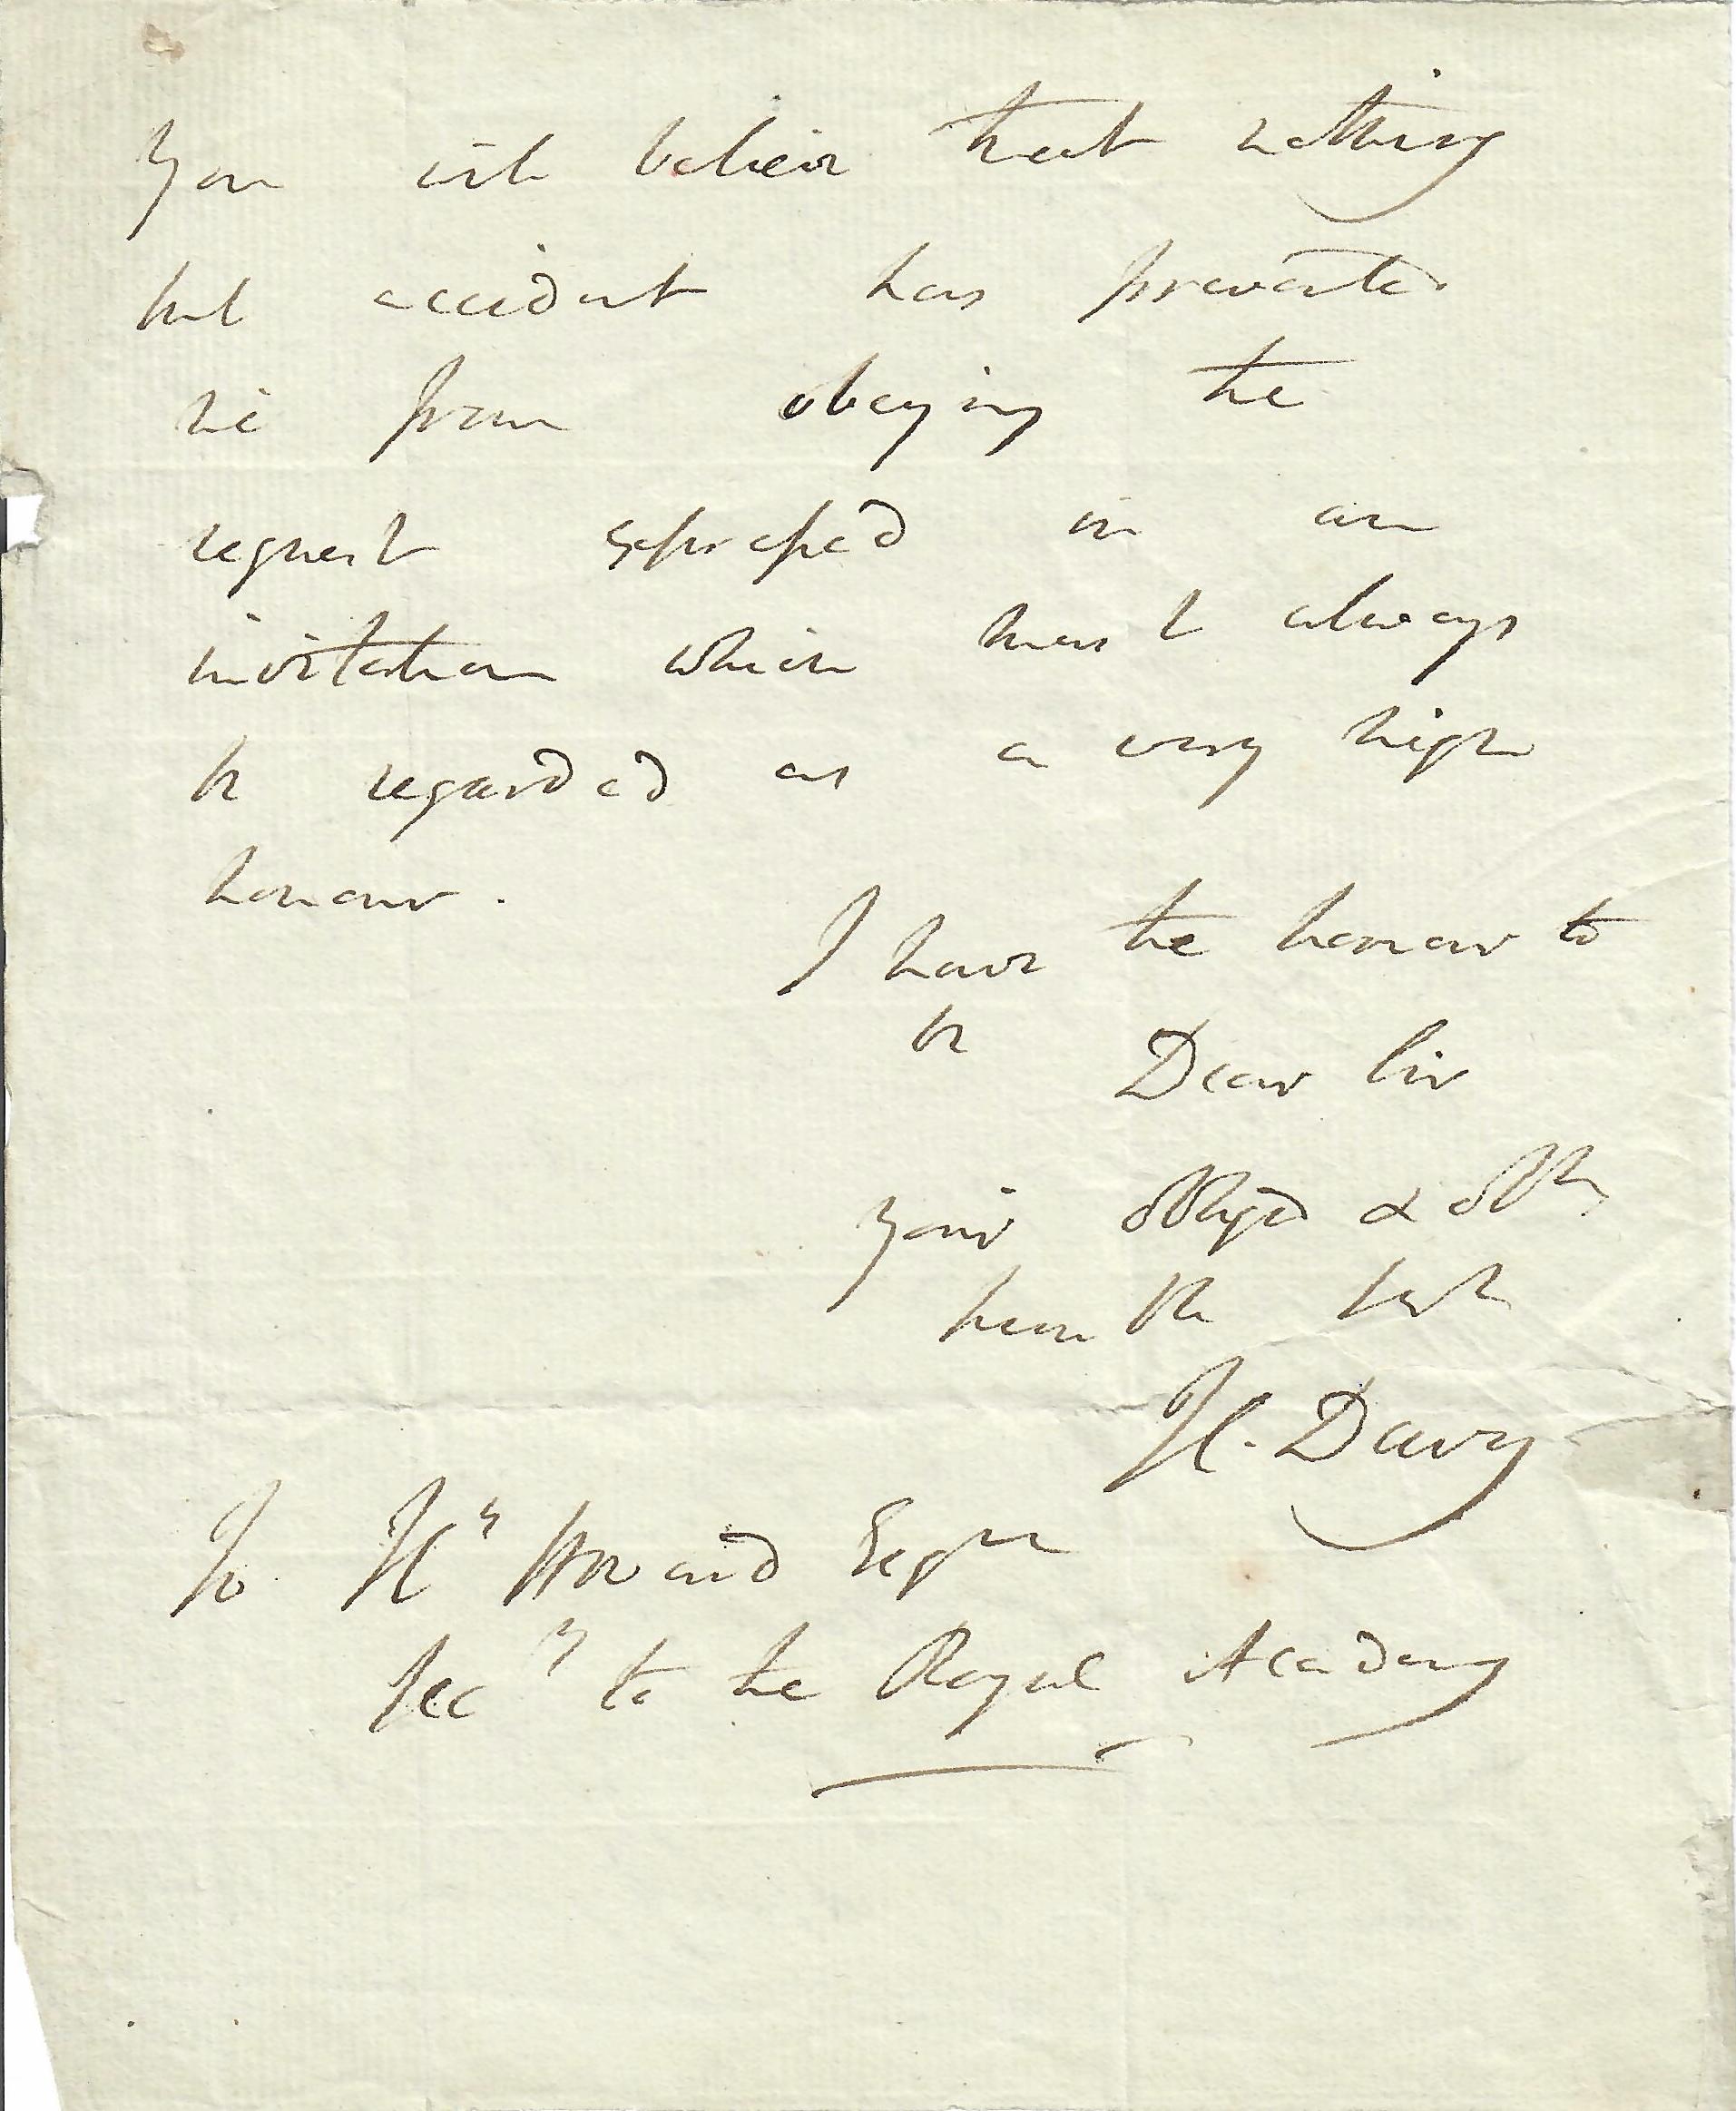 You will believe that nothing
but accident has prevented
me from obeying the
request expressed in an
invitation which must always
be regarded as a very high
honour.
I have the honour to
be Dear Sir
Your obliged & obt
humble Sert
H. Davy
To Hy Howard Esqre
Secy to the Royal Academy